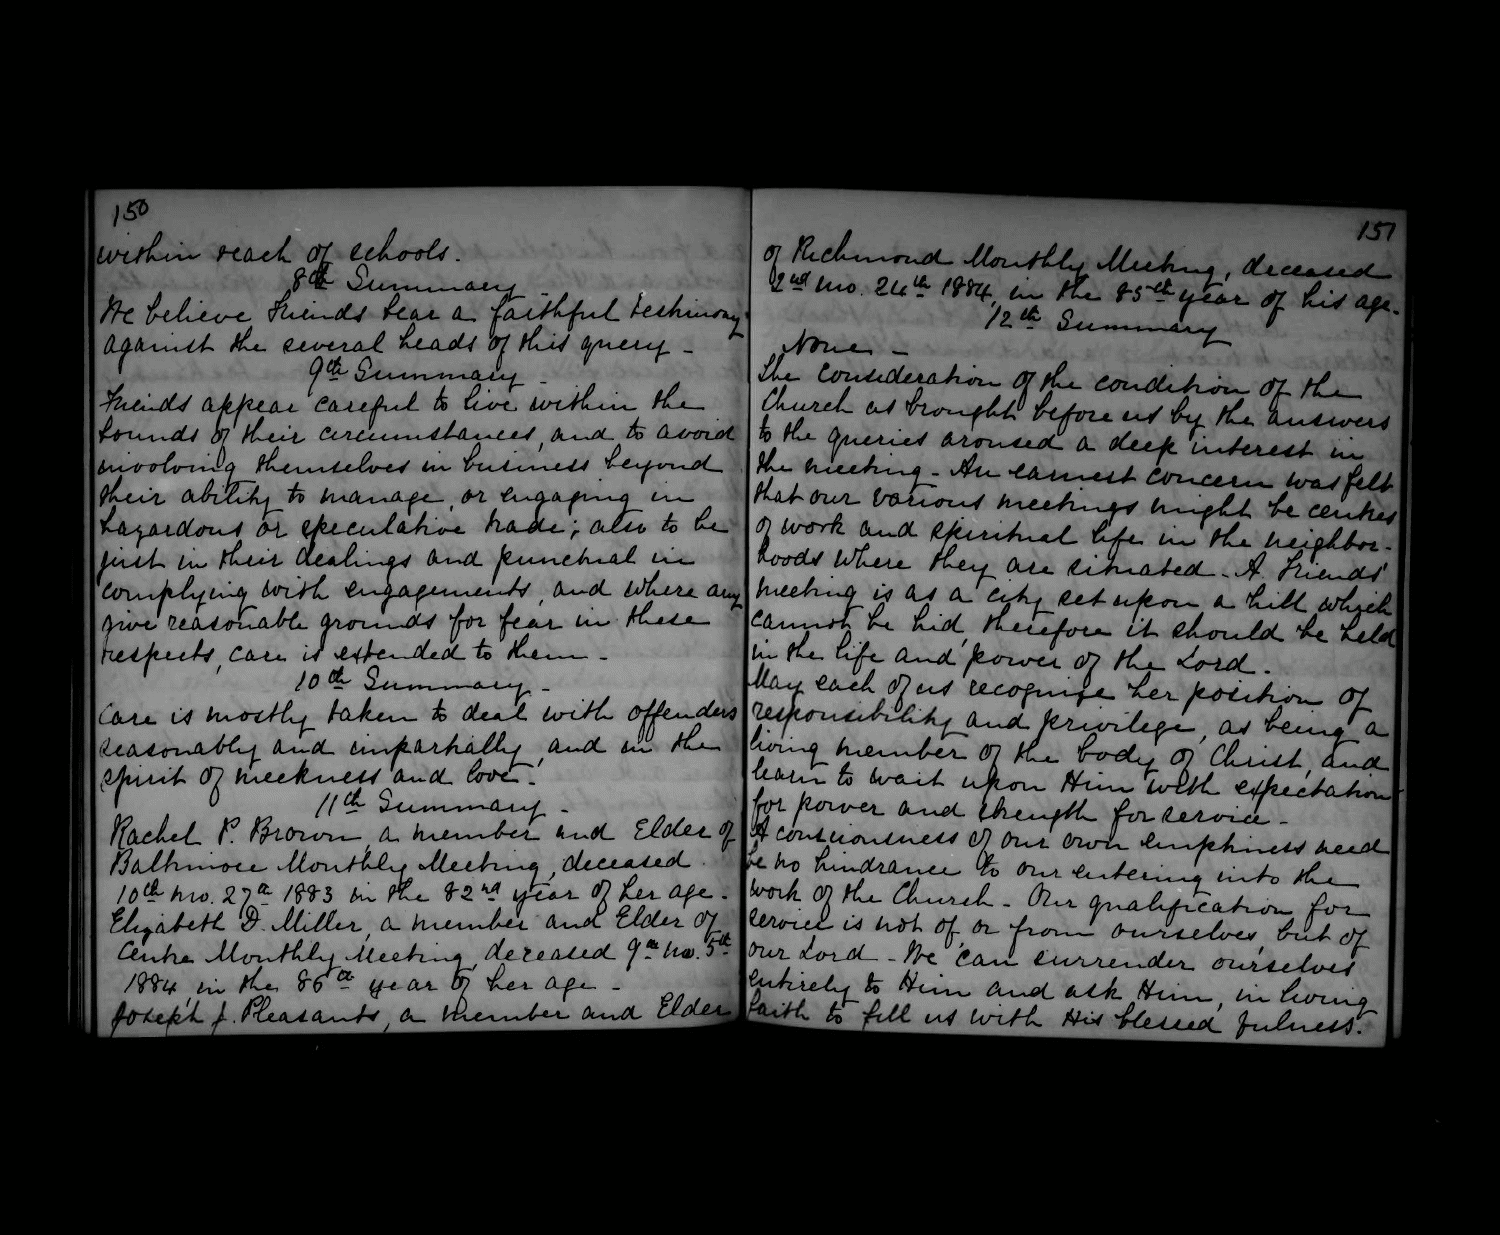 150
within reach of schools.
8th Summary
We believe Friends bear a faithful testimony
against the several heads of this query -
9th Summary -
Friends appear careful to live within the
bounds of their circumstances, and to avoid
involving themselves in business beyond
their ability to manage, or engaging in
hazardous or speculative trade; also to be
just in their dealings and punctual in
complying with engagements, and where any
give reasonable grounds for fear in these
respects, care is extended to them -
10th Summary -
Care is mostly taken to deal with offenders
seasonably and impartially, and in the
spirit of meekness and love -
11th Summary -
Rachel P. Brown, a member and Elder of
Baltimore Monthly Meeting, deceased
10th mo. 27th 1883 in the 82nd year of her age -
Elizabeth D. Miller, a member and Elder of
Centre Monthly Meeting, deceased 9th mo. 5th
1884, in the 86th year of her age -
Joseph J. Pleasants, a member and Elder
151
of Richmond Monthly Meeting, deceased
2nd mo. 26th 1884, in the 85th year of his age -
12th Summary
None -
The consideration of the condition of the
Church as brought before us by the answers
to the queries aroused a deep interest in
the meeting - An earnest concern was felt
that our various meetings might be centres
of work and spiritual life in the neighbor-
hoods where they are situated - A Friends'
meeting is as a city set upon a hill which
cannot be hid, therefore it should be held
in the life and power of the Lord -
May each of us recognize her position of
responsibility and privilege, as being a
living member of the body of Christ, and
learn to wait upon Him with expectation
for power and strength for service -
A consciousness of our own emptiness need
be no hindrance to our entering into the
work of the Church - Our qualification for
service is not of, or from ourselves, but of
our Lord - We can surrender ourselves
entirely to Him and ask Him, in living
faith to fill us with His blessed fulness.